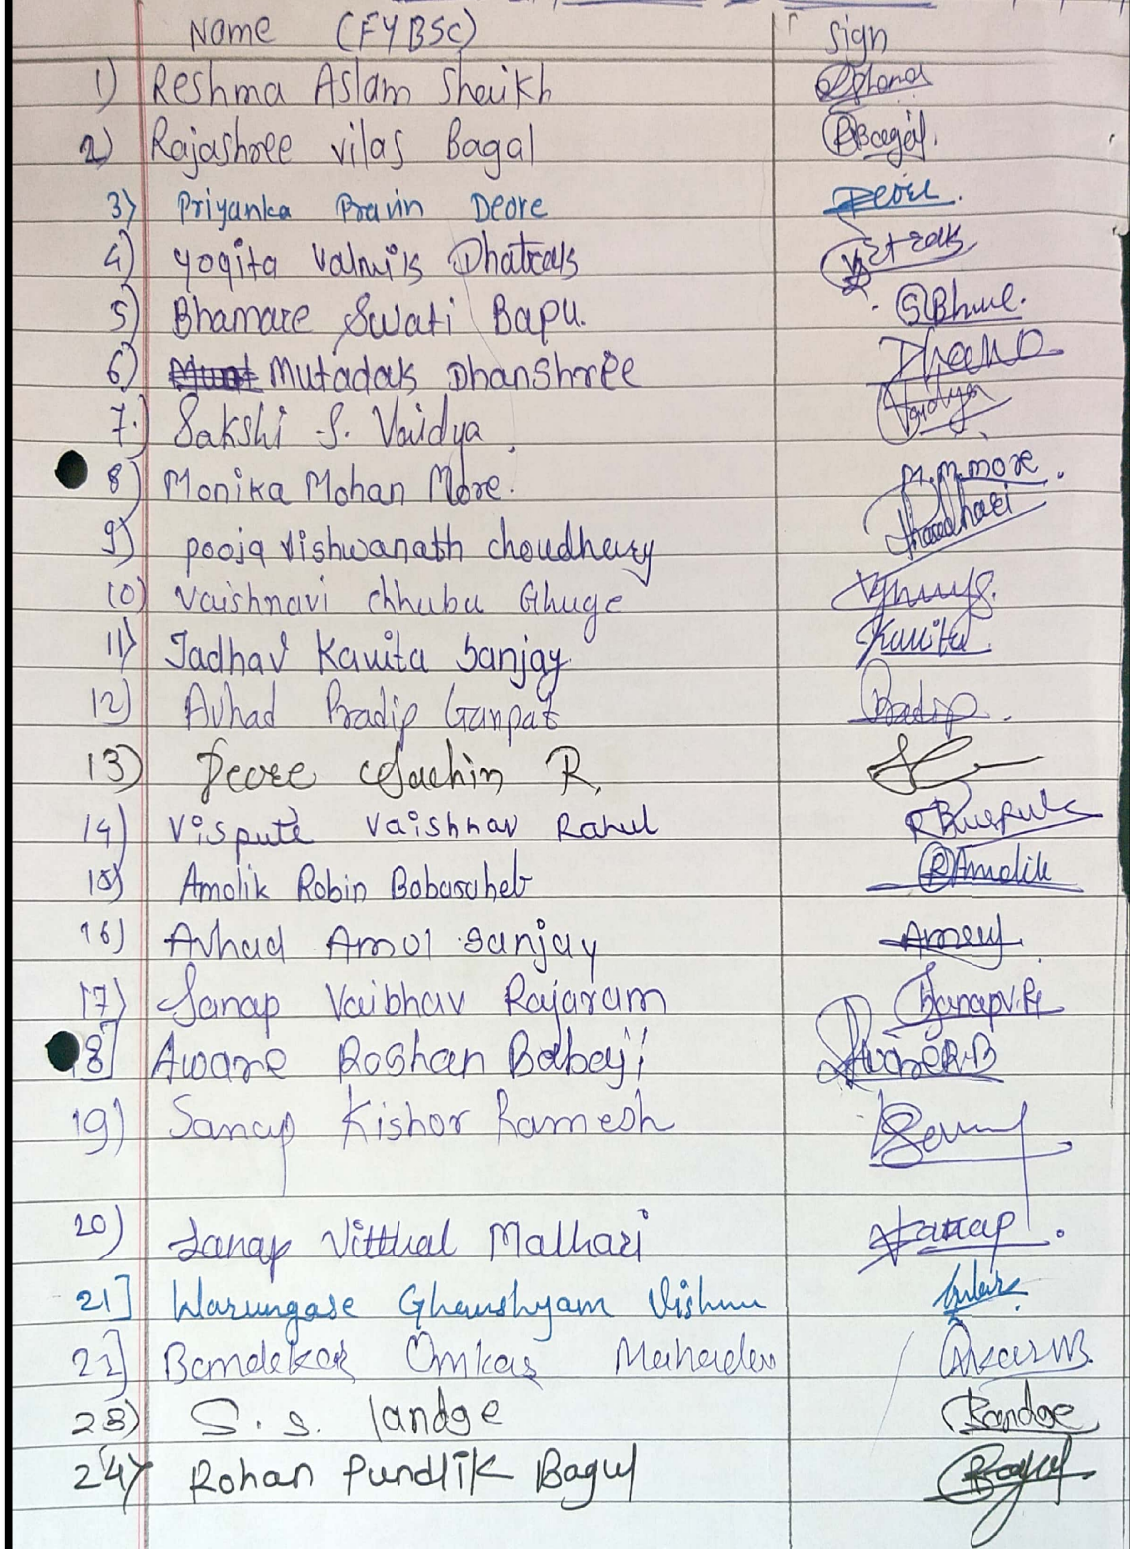 Name (FYBSC) Sign
1) Reshma Aslam Shaikh
2) Rajashree vilas Bagal RBagal.
3) Priyanka Pravin Deore Deore.
4) yogita Valmik Dhatrak
5) Bhamare Swati Bapu.
6) Mutadak Dhanshree
7.) Sakshi S. Vaidya Vaidya
8) Monika Mohan More. M.M.more.
9) pooja vishwanath choudhary
10) Vaishnavi chhubu Ghuge
11) Jadhav Kavita Sanjay Kavita.
12) Avhad Pradip Ganpat Pradip.
13) Deore Sachin R.
14) Vispute Vaishnav Rahul
15) Amolik Robin Babasaheb RAmolik
16) Avhad Amol Sanjay
17) Sanap Vaibhav Rajaram SanapV.R
18] Aware Roshan Babaji AwareR.B
19) Sanap Kishor Ramesh
20) Sanap Vitthal Malhari Sanap.
21] Warungase Ghanshyam Vishnu
22] Bamdekar Omkar Mahadev
23) S. s. landge Landge
24) Rohan Pundlik Bagul Bagul